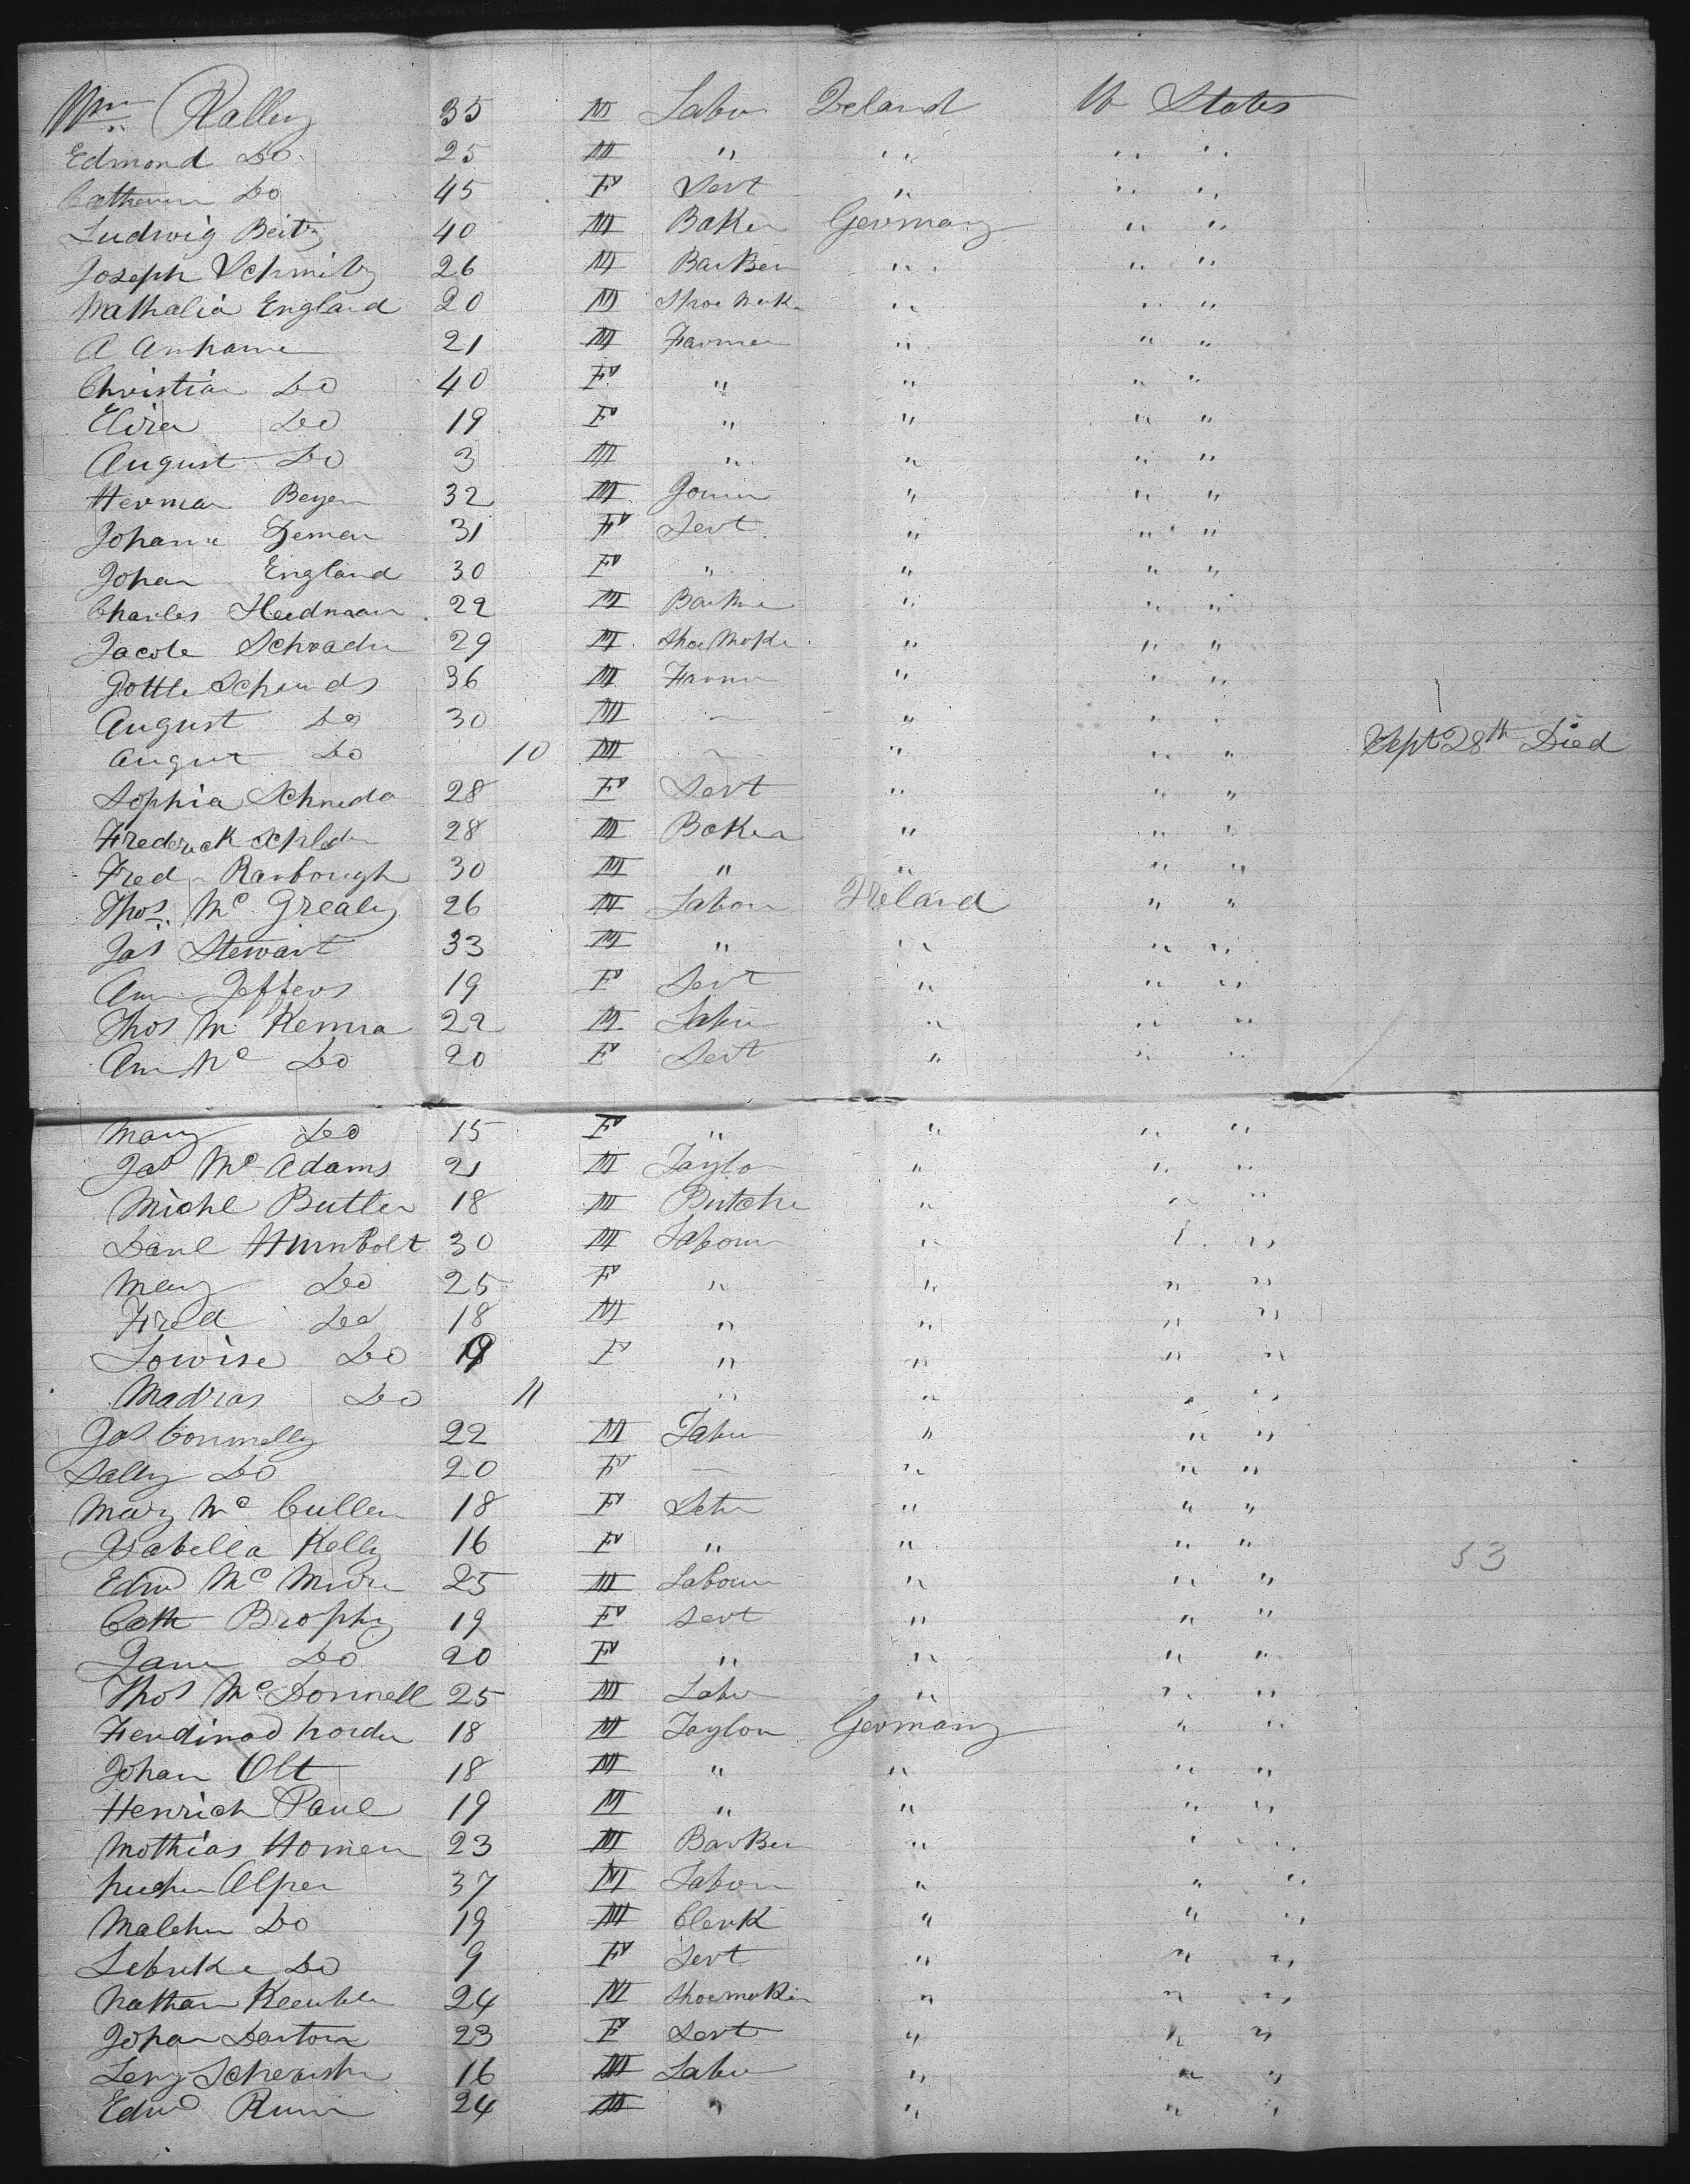 Wm Ralley 35 M Labor Ireland U States
Edmond Do 25 M " " " "
Catherine Do 45 F Servt " " "
Ludwig Beitz 40 M Baker Germany " "
Joseph Schmitz 26 M Barber " " "
Mathalia England 20 M Shoe Mak " " "
A Amhame 21 M Farmer " " "
Christian Do 40 F " " " "
Elira Do 19 F " " " "
August Do 3 M " " " "
Herman Beyer 32 M " " "
Johann Demen 31 F Servt " " "
Johan England 30 F " " " "
Charles Heedmaan 22 M " " "
Jacob Schrader 29 M Shoe Make " " "
Gottle 36 M Farmer " " "
August Do 30 M " " "
August Do 10 M " " " Sept 28th Died
Sophia Schneda 28 F Servt " " "
Frederick 28 M Baker " " "
Fred Rarbough 30 M " " " "
Thos. Mc Grealy 26 M Labor Ireland " "
Jas Stewart 33 M " " " "
Ann Jeffers 19 F Servt " " "
Thos Mc Kenna 22 M Labor " " "
Ann Mc Do 20 F Servt " " "
Mary Do 15 F " " " "
Jas Mc Adams 21 M Taylor " " "
Michl Butler 18 M Butcher " " "
Danl Humbolt 30 M Labour " " "
Mary Do 25 F " " " "
Fred Do 18 M " " " "
Lowise Do 19 F " " " "
Madras Do 11 " " " "
Jas Connelly 22 M Labor " " "
Sally Do 20 F " " "
Mary Mc Cullen 18 F " " "
Isabella Kelly 16 F " " " "
Edwd Mc 25 M Labour " " "
Cath Brophy 19 F Servt " " "
Jane Do 20 F " " " "
Thos Mc Donnell 25 M Labor " " "
Ferdinad 18 M Taylor Germany " "
Johan Olt 18 M " " " "
Henrich Paul 19 M " " " "
Mathias Homen 23 M Barber " " "
Alper 37 M Labor " " "
Do 19 M Clerk " " "
Do 9 F Servt " " "
Nathan 24 M Shoemaker " " "
Johan Darton 23 F Servt " " "
16 M Labor " " "
Edwd 24 M " " " "
53